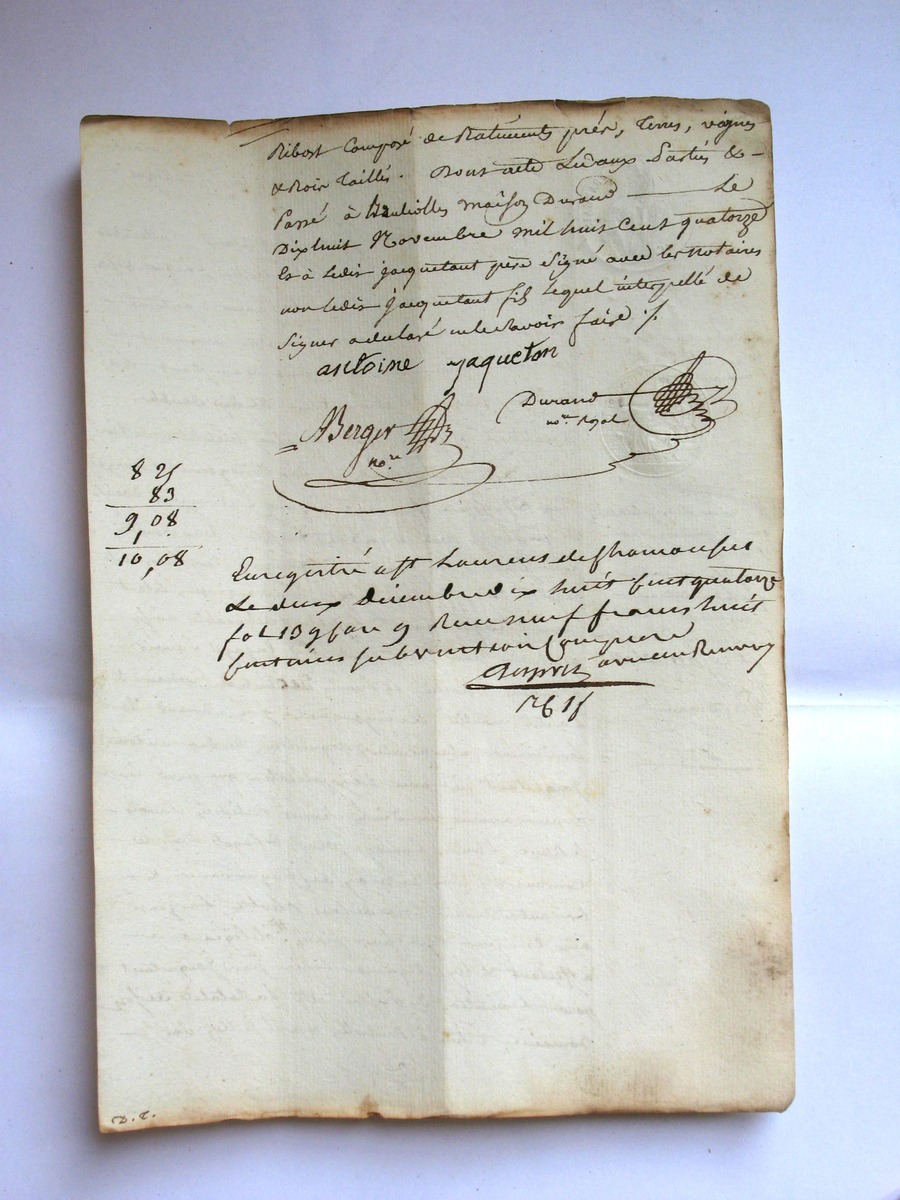 Ribost Composé de Batiments prés, terres, vignes
& Bois taillés. Dont acte Lu aux Parties &
Passé à maison Durand Le
Dix huit Novembre mil huit Cent quatorze
Et à Ledit jacquetant père Signé avec les Notaires
non Ledit jacquetant fils Lequel interpellé de
Signer a déclaré ne le Savoir faire ./.
antoine jaqueton
Durand
nore Royal
ABerger
nore
8 25
83
9,08
1
10,08
Enregistré a St Laurens de Chamousset
Le deux Décembre dix huit Cent quatorze
fol 139 Recu neuf francs huit
Centimes
D. T.